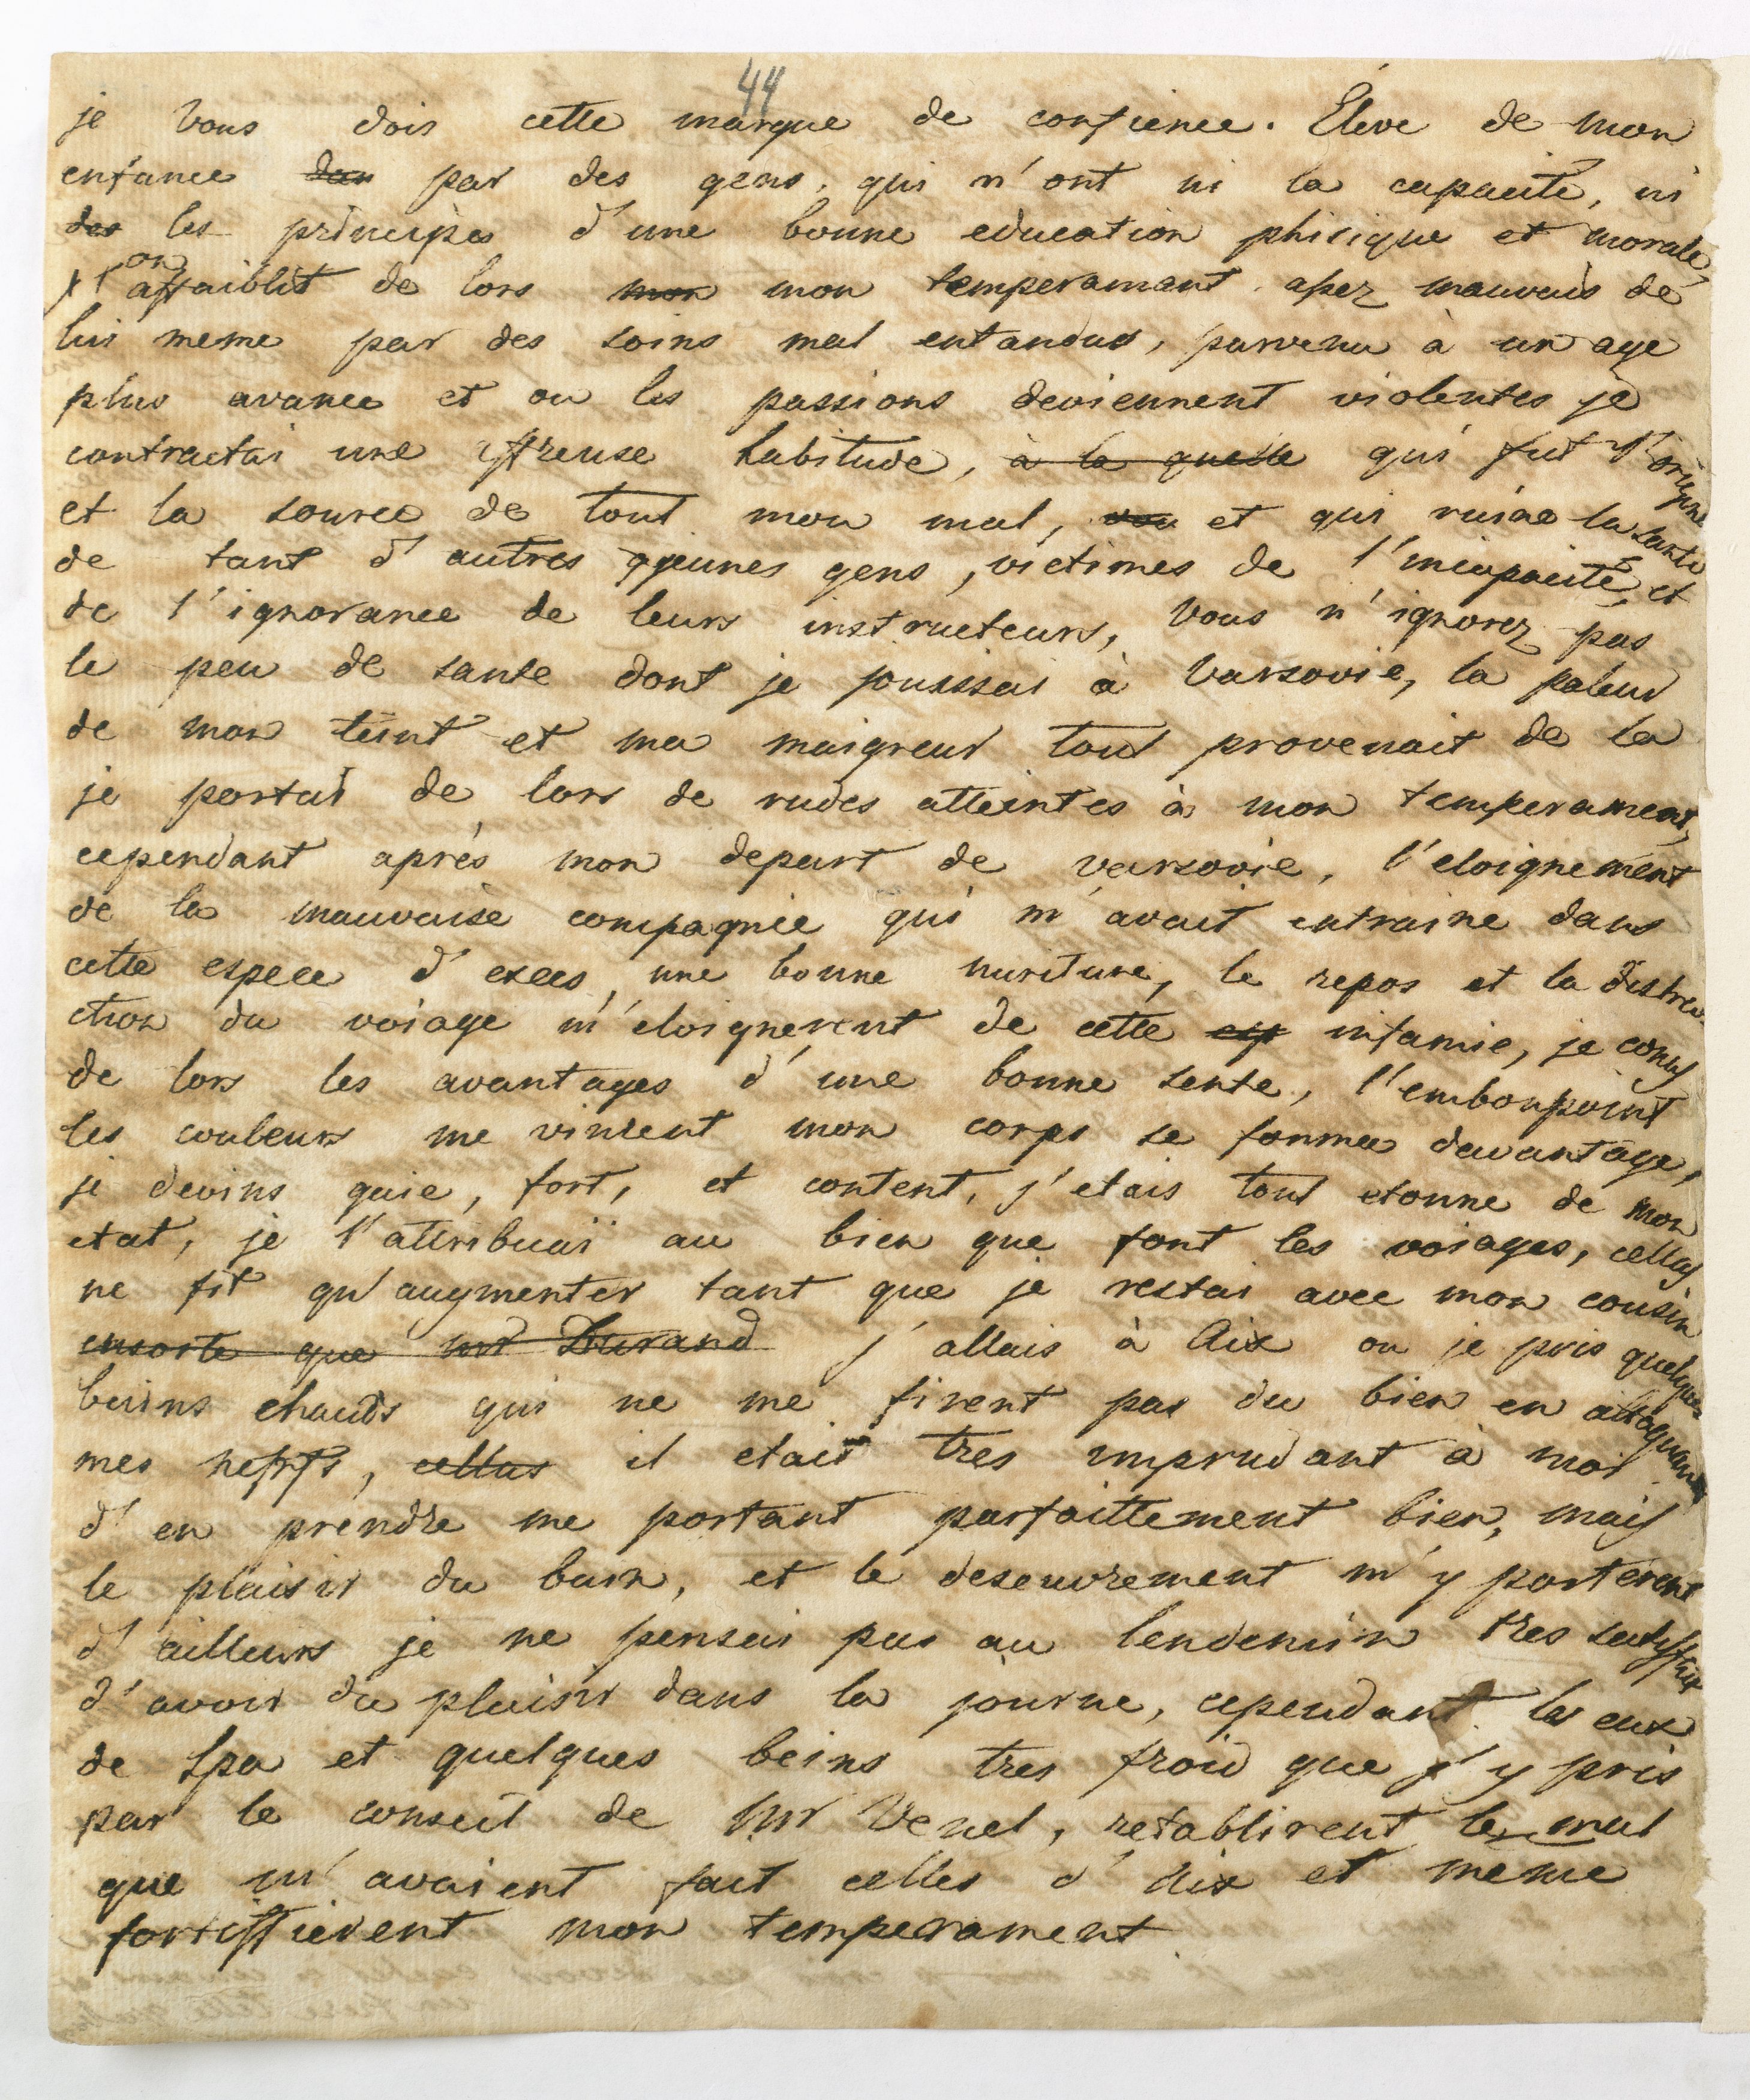 44
je vous dois cette marque de confience. Éleve de mon
enfance dan par des gens, qui n'ont ni la capacité, ni
des les principes d'une bonne education phisique et morale,
on affaiblit de lors mon mon temperamant assez mauvais de
lui meme par des soins mal entandus, parvenu à un age
plus avance et ou les passions deviennent violentes je
contractai une affreuse habitude, à la quelle qui fut l'origine
et la source de tout mon mal, et qui ruine la sante
de tant d'autres jeunes gens, victimes de l'incapacité, et
de l'ignorance de leurs instructeurs, vous n'ignorez pas
le peu de sante dont je jouissai à Varsovie, la paleur
de mon teint et ma maigreur tout provenait de la
je portai de lors de rudes atteintes à mon temperament,
cependant aprés mon depart de varsovie, l'eloignement
de la mauvaise compagnie qui m'avait entraine dans
cette espece d'exces, une bonne nuriture, le repos et la distra-
ction du voiage m'eloignerent de cette esp infamie, je conus
de lors les avantages d'une bonne sente, l'embonpoint
les couleurs me vinrent mon corps se forma davantage,
je devins gaie, fort, et content, j'etais tout etonne de mon
etat, je l'attribuai au bien que font les voiages, cella
ne fit qu'augmenter tant que je restai avec mon cousin
ensorte que mr Durand j'allais à Aix ou je pris quelques
bains chauds qui ne me firent pas du bien en attaquant
mes nerfs, cellas il etait tres imprudant à moi
d'en prendre me portant parfaittement bien, mais
le plaisir du bain, et le deseuvrement m'y porterent
d'ailleurs je ne pensai pas au lendemin tres satisfait
d'avoir du plaisir dans la journe, cependant les eux
de Spa et quelques beins tres froid que j'y pris
par le conseil de mr Venel, retablirent le mal
que m'avaient fait celles d'Aix et meme
fortiffierent mon temperament